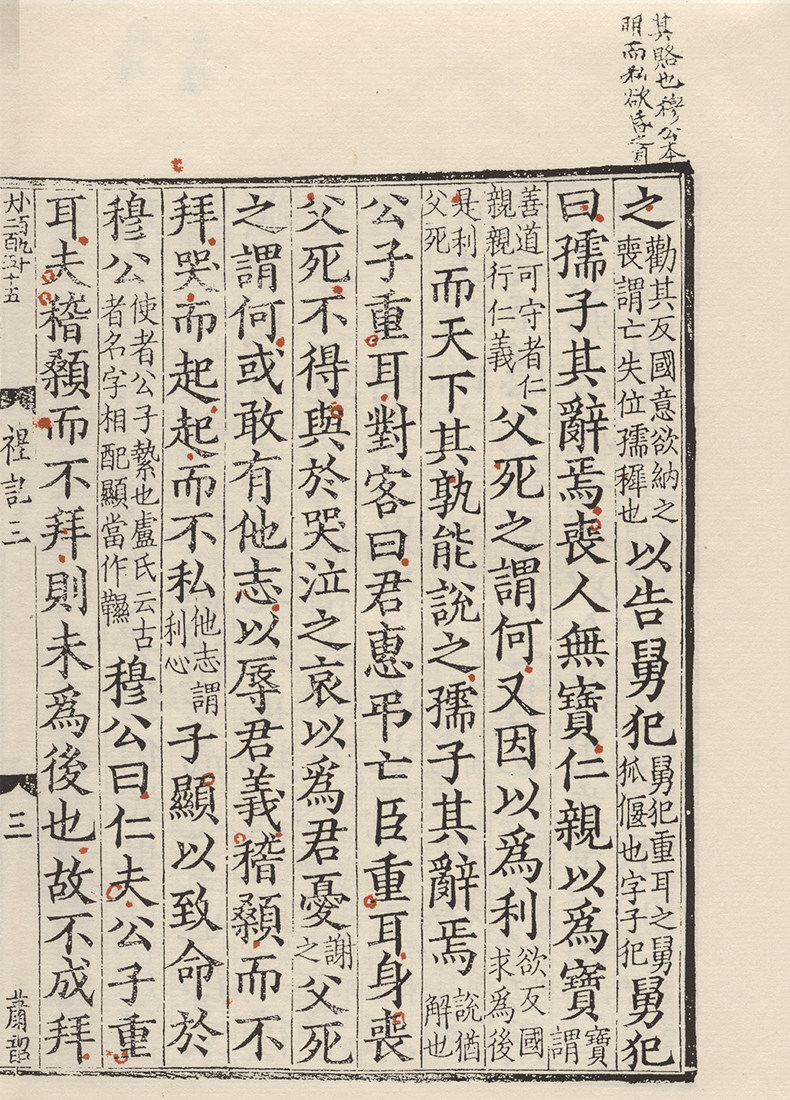 其賂也穆公本
明而私欲昏之
之勸其反國意欲納之喪謂亡失位孺稺也以告舅犯舅犯重耳之舅狐偃也字子犯舅犯
曰孺子其辭焉喪人無寶仁親以爲寶寶謂
善道可守者仁親親行仁義父死之謂何又因以爲利欲反國求爲後
是利父死而天下其孰能說之孺子其辭焉說猶解也
公子重耳對客曰君惠弔亡臣重耳身喪
父死不得與於哭泣之哀以爲君憂謝之父死
之謂何或敢有他志以辱君義稽顙而不
拜哭而起起而不私他志謂利心子顯以致命於
穆公使者公子縶也盧氏云古者名字相配顯當作韅穆公曰仁夫公子重
耳夫稽顙而不拜則未爲後也故不成拜
小百九十
大二百五十五
禮記三
三
蕭韶